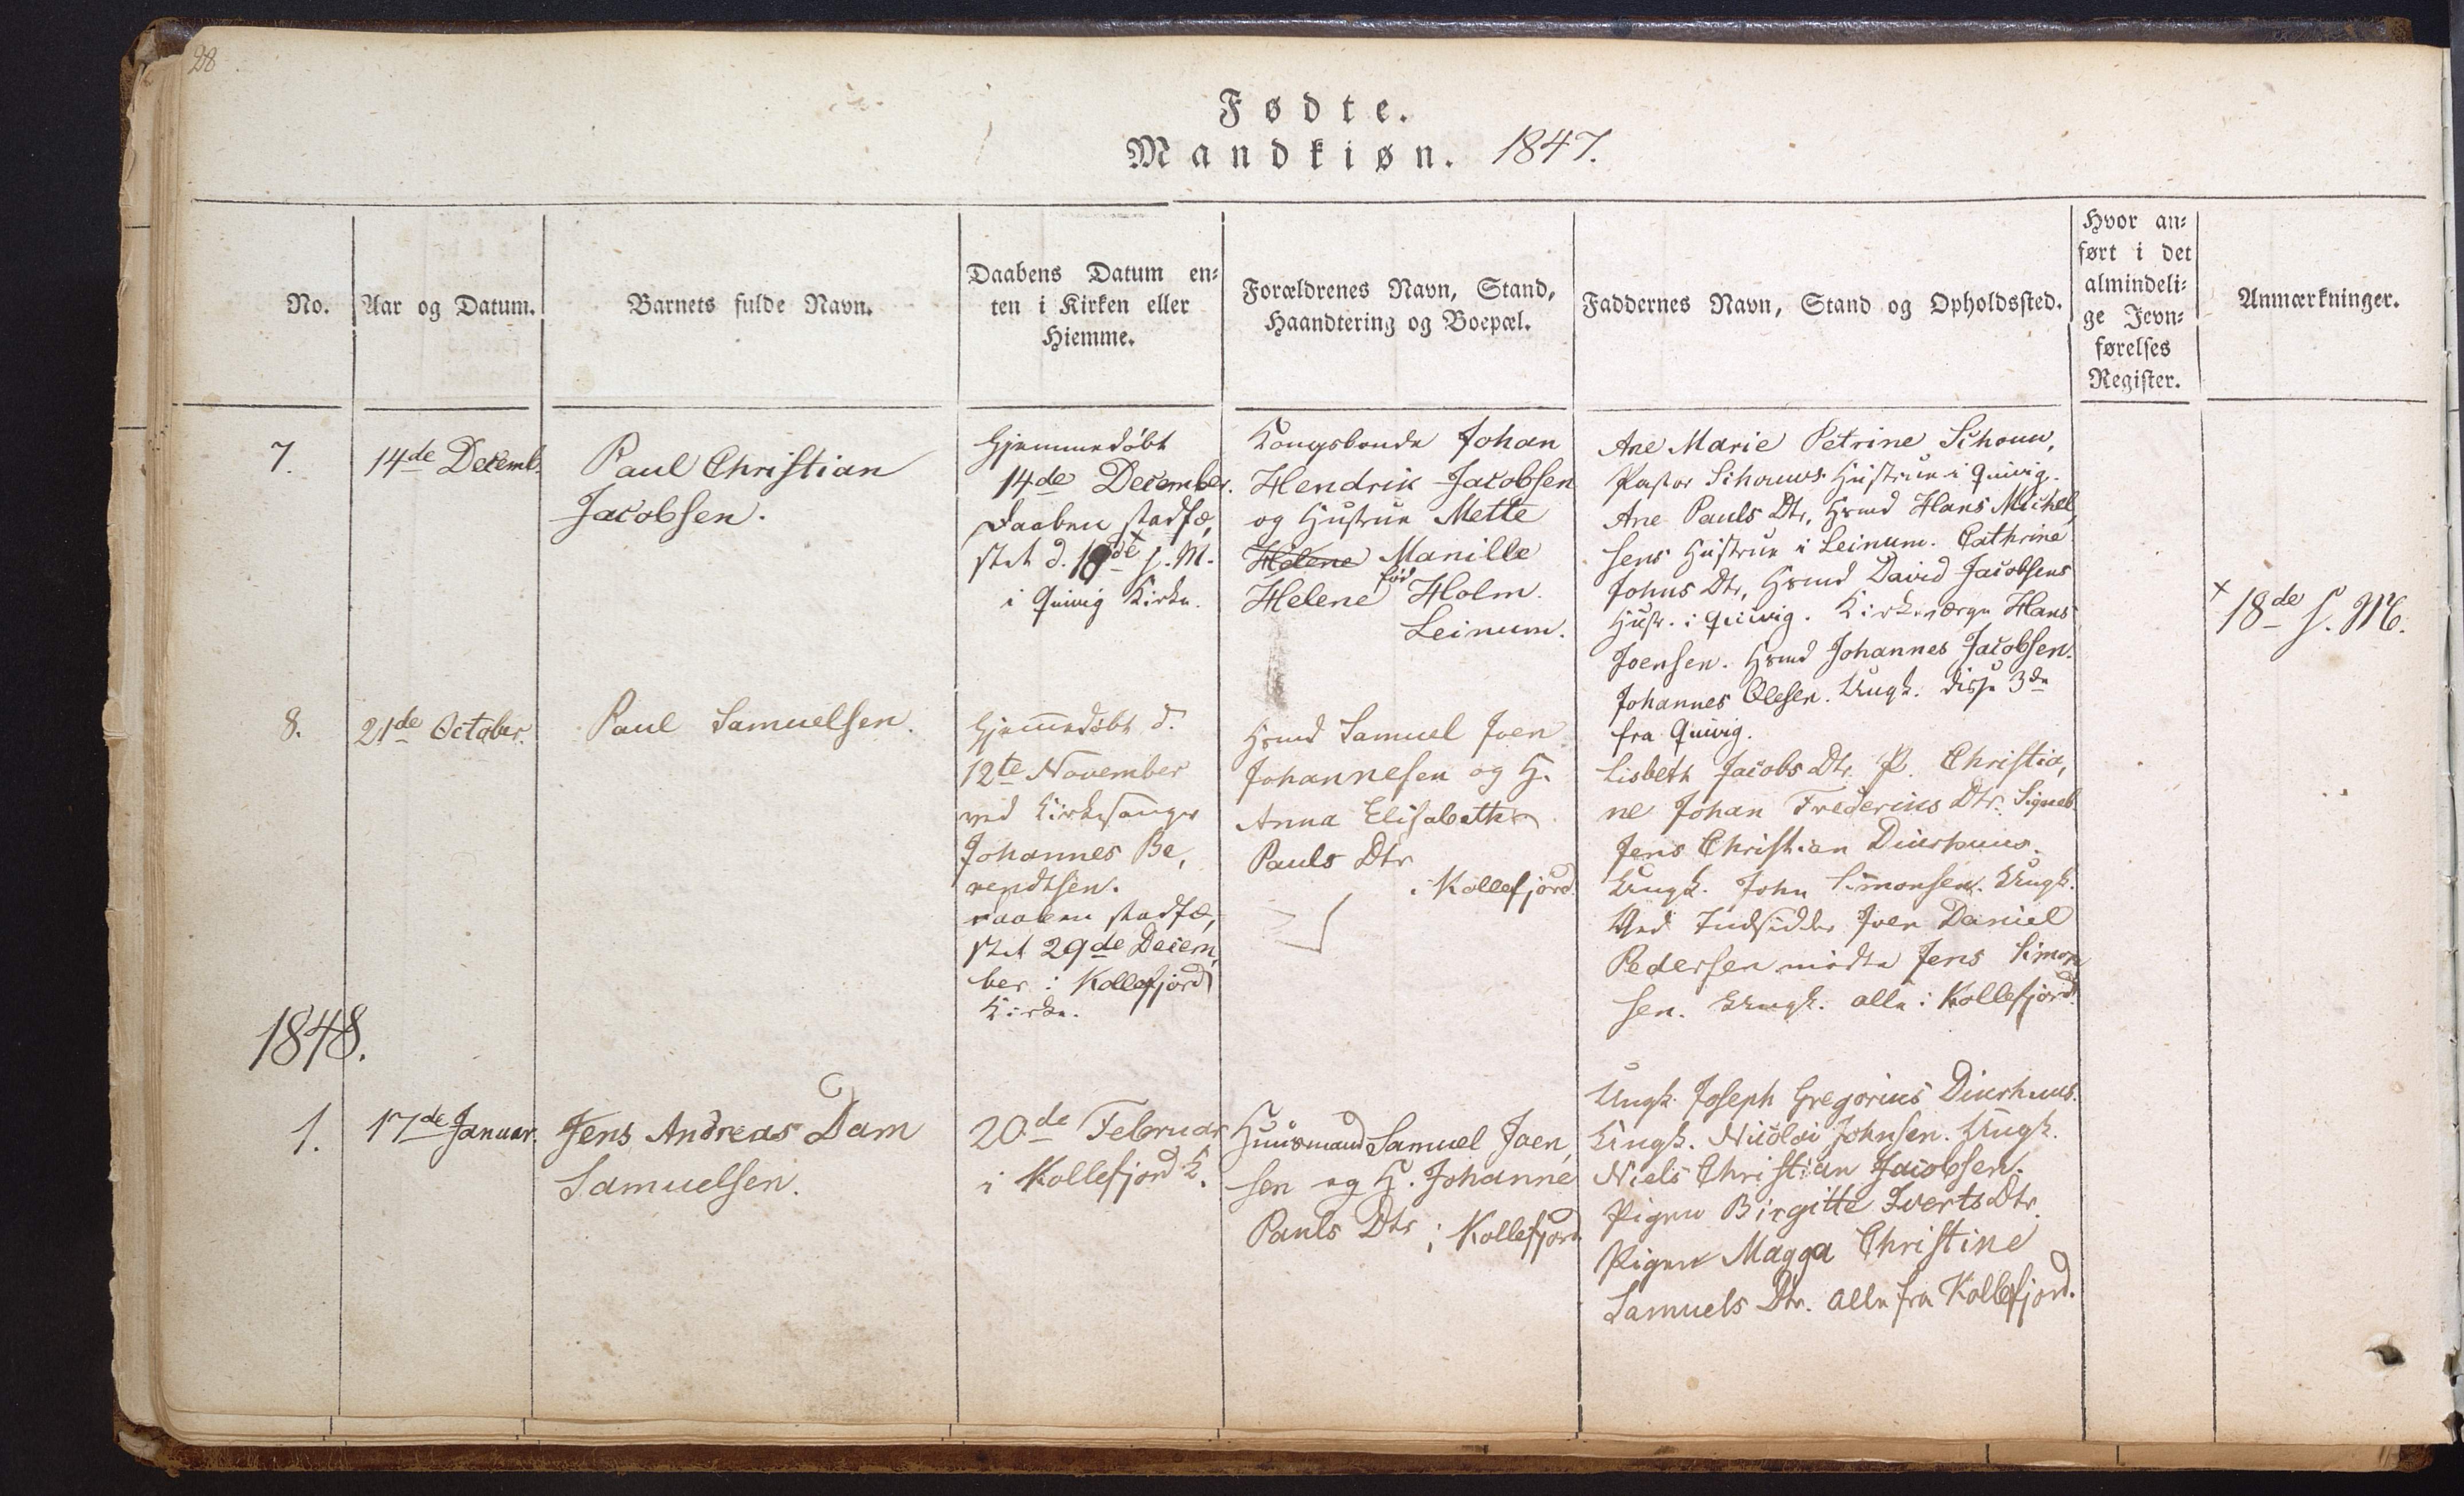 28
Fødte.
Mandkiøn. 1847.
No.
Aar og Datum.
Barnets fulde Navn.
Daabens Datum en-
ten i Kirken eller
Hiemme.
Forældrenes Navn, Stand,
Haandtering og Boepæl.
Faddernes Navn, Stand og Opholdssted.
Hvor an-
ført i det
almindeli-
ge Jevn-
førelses
Register.
Anmærkninger.
7.
14de Decemb.
Paul Christian
Jacobsen.
Hjemmedøbt
14de December.
Daaben stadfæ,
stet d. 18de s. M.
i Quivig Kirke.
Kongsbonde Johan
Hendrik Jacobsen
og Hustrue Mette
Helene Manille
Helene fød Holm.
Leinum.
Ane Marie Petrine Schouw,
Pastor Schouws Hustrue i Quivig.
Ane Pauls Dtr, Hsmd Hans Michel,
sens Hustrue i Leinum. Cathrine
Johns Dtr, Hsmd David Jacobsens
Hustr. i Quivig. Kirkeværge Hans
Joensen. Hsmd Johannes Jacobsen.
Johannes Olesen. Ungk. disse 3de
fra Quivig.
x 18de s. M.
8.
21de October.
Paul Samuelsen.
Hjemmedøbt d.
12te November
ved Kirkesanger
Johannes Be,
rendtsen.
Daaben stadfæ,
stet 29de Decem,
ber i Kollefjord
Kirke.
Hsmd Samuel Joen
Johannesen og H.
Anna Elisabeth
Pauls Dtr
i Kollefjord.
Lisbeth Jacobs Dtr. P. Christia,
ne Johan Frederics Dtr. Signeb.
Jens Christian Diurhuus.
Ungk. John Simonsen. Ungk.
Ved Indsidder Joen Daniel
Pedersen mødte Jens Simon
sen. Ungk. alle i Kollefjord.
1848.
1.
17de Januar.
Jens Andreas Dam
Samuelsen.
20de Februar
i Kollefjord K.
Huusmand Samuel Joen,
sen og H. Johanne
Pauls Dtr i Kollefjord.
Ungk. Joseph Gregorius Diurhuus.
Ungk. Nicolai Johnsen. Ungk.
Niels Christian Jacobsen.
Pigen Birgitte Iverts Dtr.
Pigen Magga Christine
Samuels Dtr. alle fra Kollefjord.